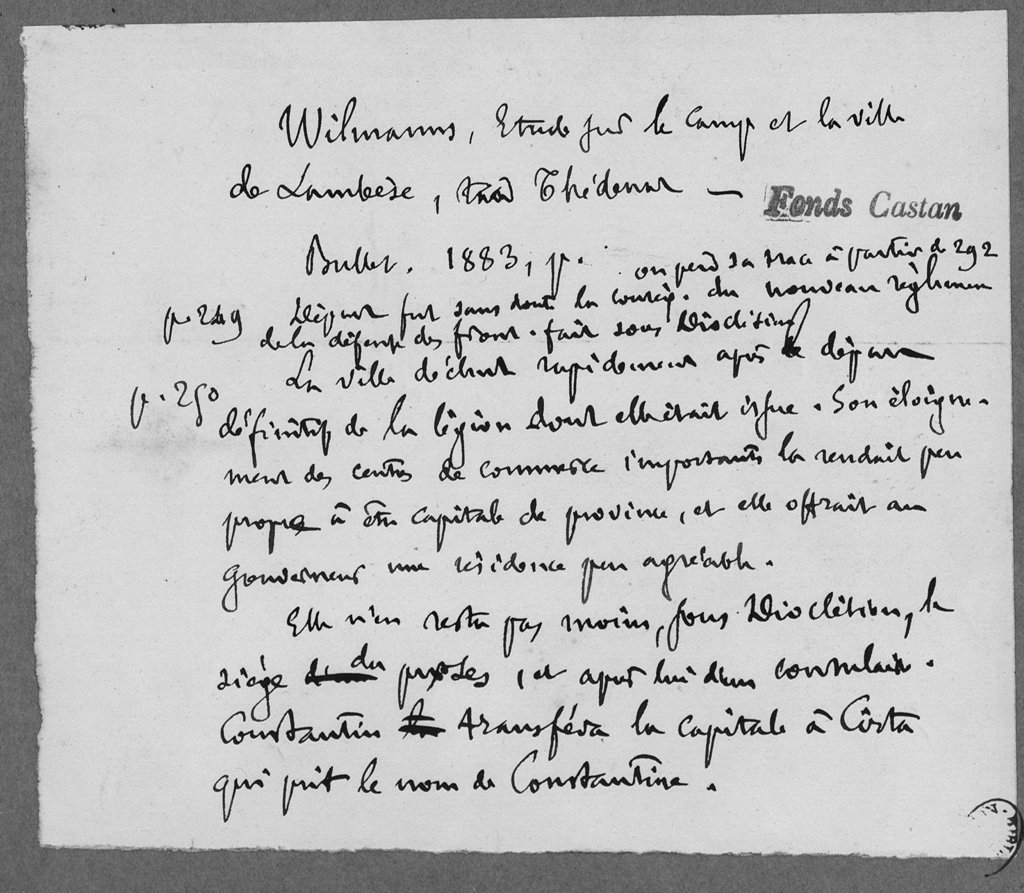 Wilmanns, Etude sur le camp et la ville
de Lambèse, trad Thédenat —
Fonds Castan
Bullet. 1883, p.
on perd sa trace à partir de 292
p. 249 Départ fut sans doute la conséq. du nouveau règlement
de la défense des front. fait sous Dioclétien
p. 250 La ville déchut rapidement après le départ
définitif de la légion dont elle était issue. Son éloigne-
ment des centres de commerce importants la rendait peu
propre à être capitale de province, et elle offrait au
gouverneur une résidence peu agréable.
Elle n'en resta pas moins, sous Dioclétien, le
siège du praeses, et après lui d'un consulaire.
Constantin transféra la capitale à Cirta
qui prit le nom de Constantine.